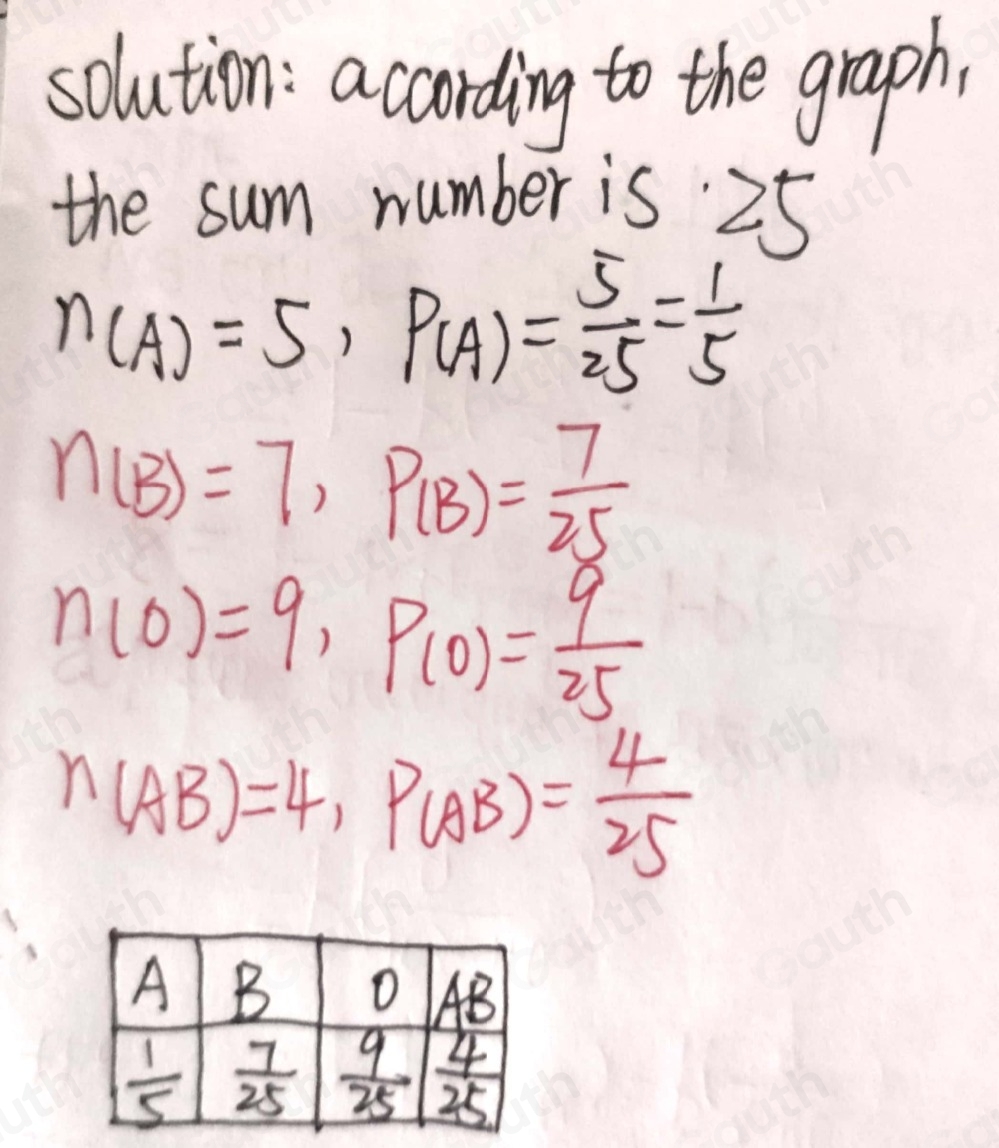 solution: according to the graph,
the sum number is 25
n(A) = 5, P(A) = 5/25 = 1/5
n(B) = 7, P(B) = 7/25
n(O) = 9, P(O) = 9/25
n(AB) = 4, P(AB) = 4/25
A B O AB
1/5 7/25 9/25 4/25
Gauth